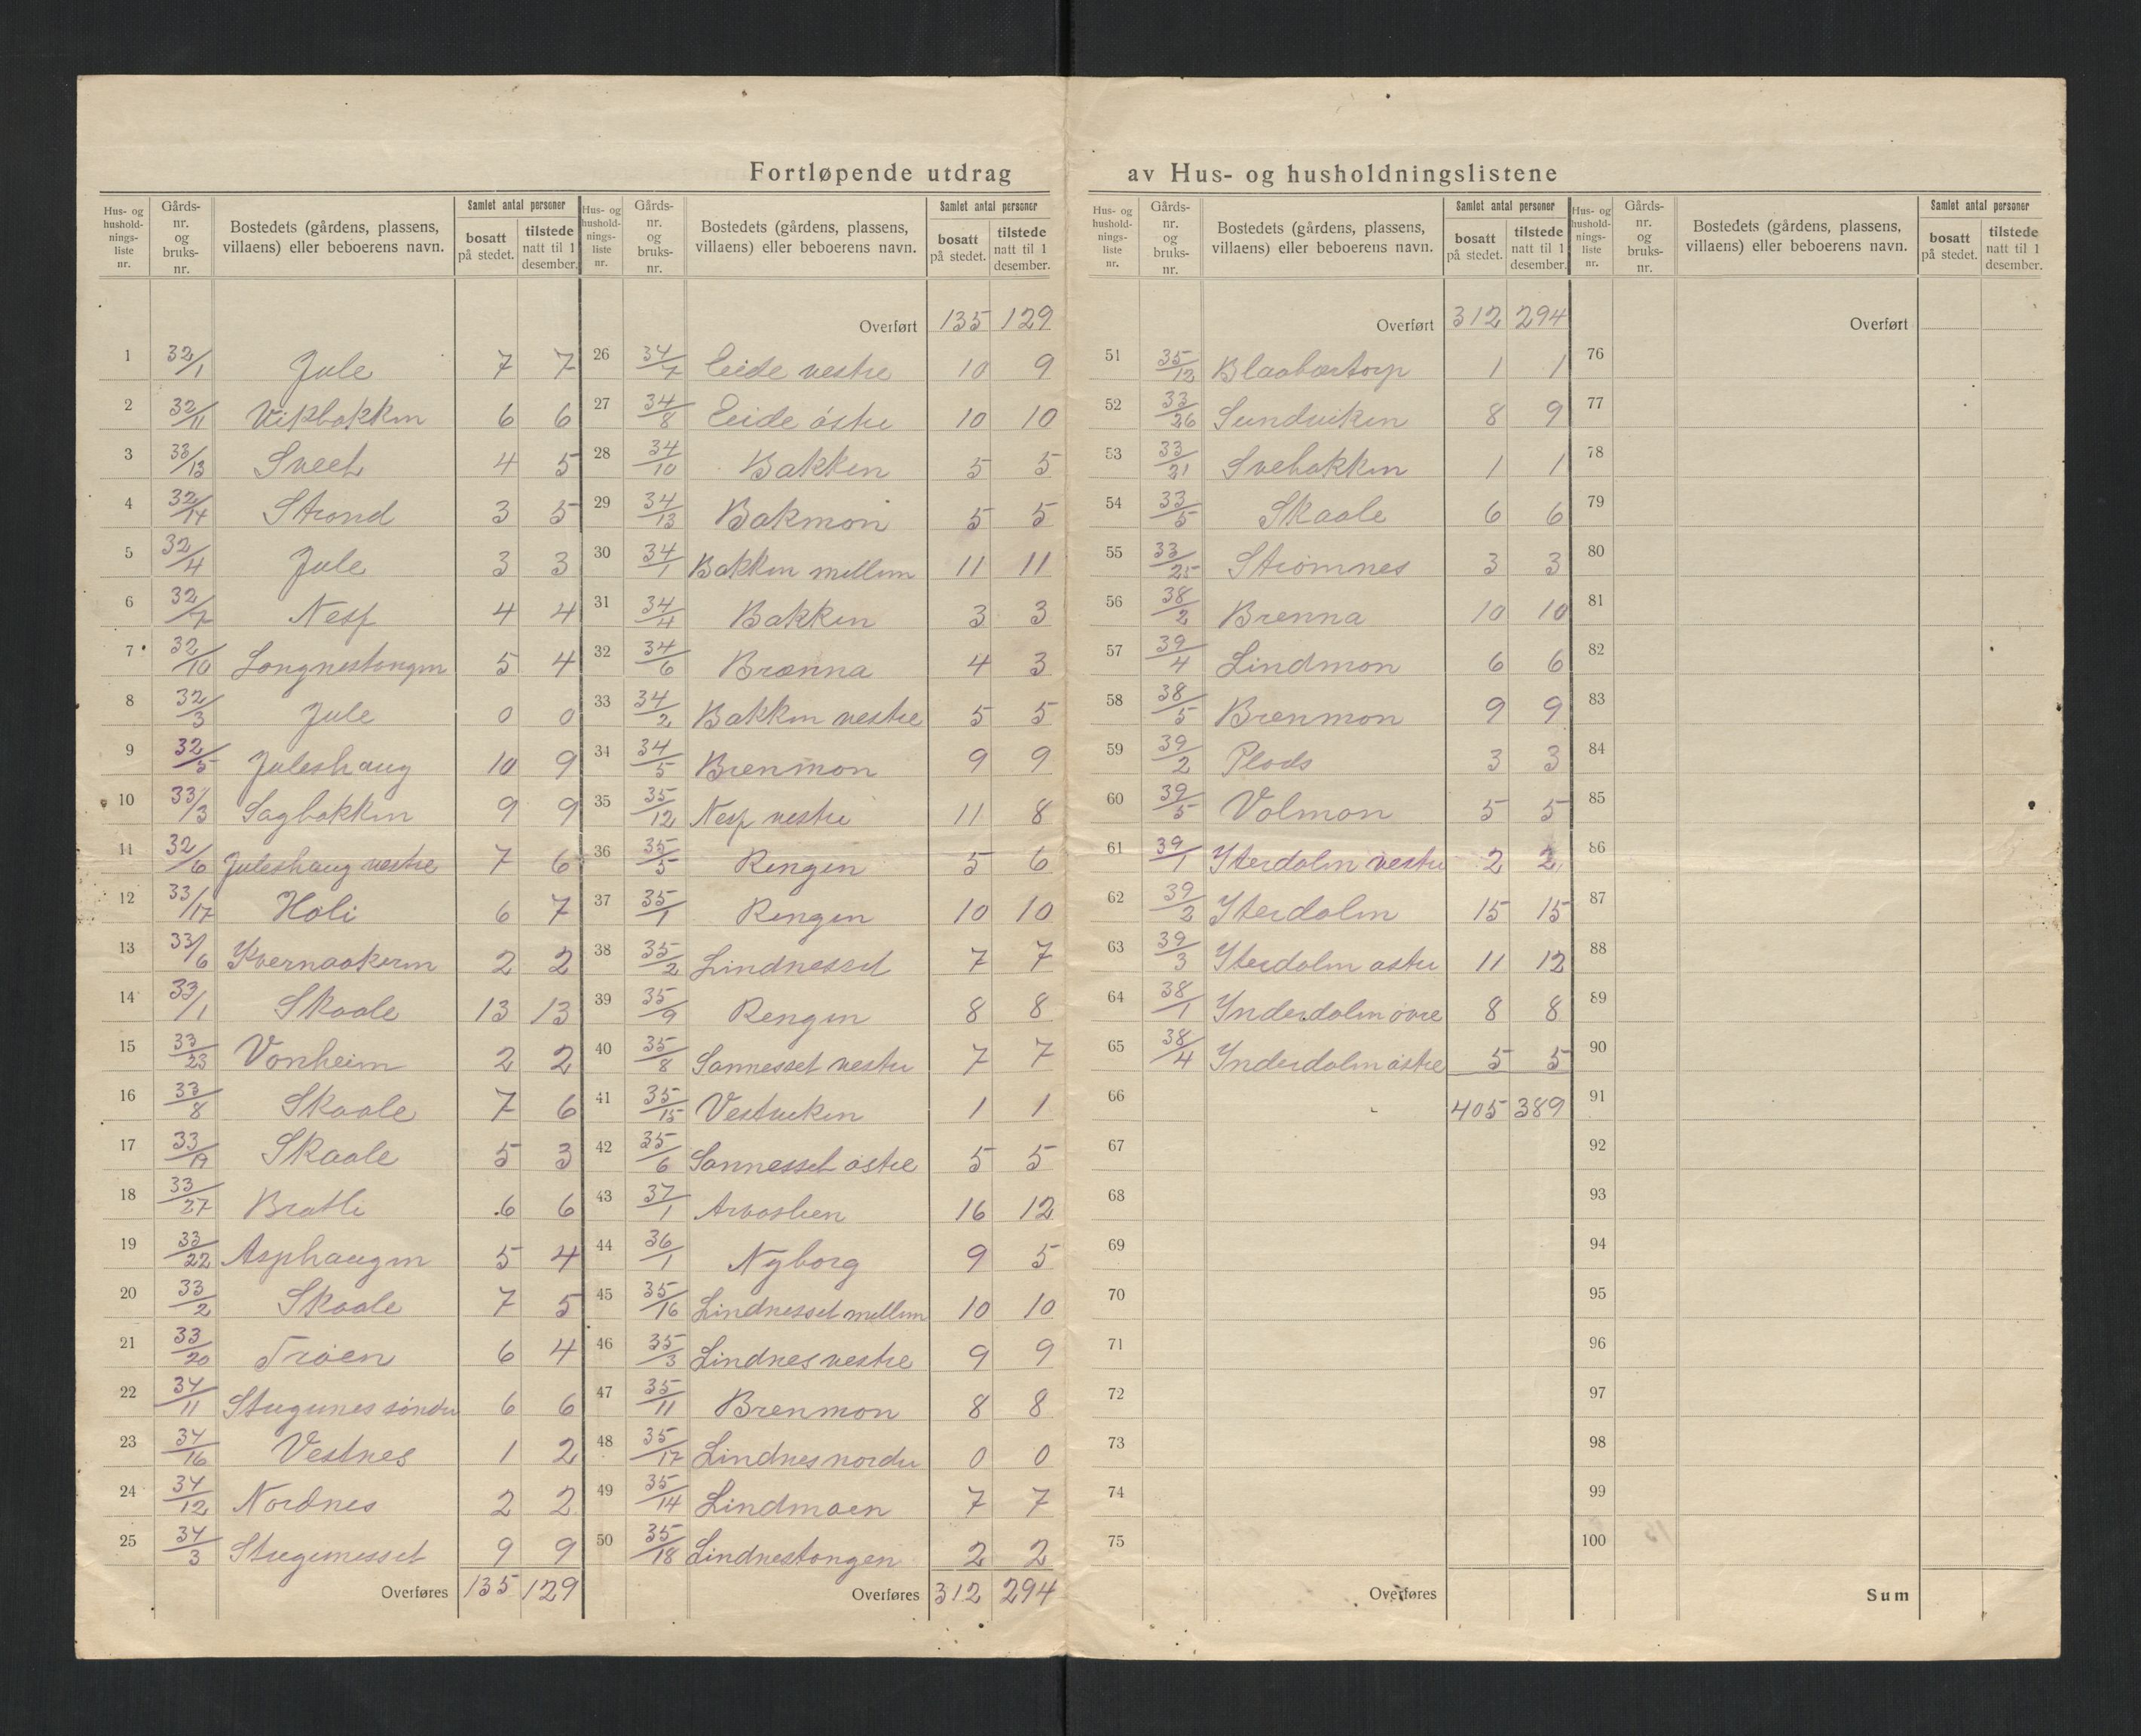 Fortløpende utdrag av Hus- og husholdningslistene
Hus- og hushold- nings- liste nr. Gårds- nr. og bruks- nr. Bostedets (gårdens, plassens, villaens) eller beboerens navn. Samlet antal personer bosatt på stedet. tilstede natt til 1 desember.
1 32/1 Jule 7 7
2 32/11 Vikbakken 6 6
3 33/13 Sveet 4 5
4 32/14 Strond 3 5
5 32/4 Jule 3 3
6 32/7 Nesp 4 4
7 32/10 Longnestongen 5 4
8 32/3 Jule 0 0
9 32/5 Juleshaug 10 9
10 33/3 Sagbakken 9 9
11 32/6 Juleshaug vestre 7 6
12 33/17 Holi 6 7
13 33/6 Kvernaakeren 2 2
14 33/1 Skaale 13 13
15 33/23 Vonheim 2 2
16 33/8 Skaale 7 6
17 33/19 Skaale 5 3
18 33/27 Bratli 6 6
19 33/22 Asphaugen 5 4
20 33/2 Skaale 7 5
21 33/20 Trøen 6 4
22 34/11 Stugunes søndre 6 6
23 34/16 Vestnes 1 2
24 34/12 Nordnes 2 2
25 34/3 Stugunesset 9 9
Overføres 135 129
Hus- og hushold- nings- liste nr. Gårds- nr. og bruks- nr. Bostedets (gårdens, plassens, villaens) eller beboerens navn. Samlet antal personer bosatt på stedet. tilstede natt til 1 desember.
Overført 135 129
26 34/7 Eide vestre 10 9
27 34/8 Eide østre 10 10
28 34/10 Bakken 5 5
29 34/13 Bakmon 5 5
30 34/1 Bakken mellem 11 11
31 34/4 Bakken 3 3
32 34/6 Brænna 4 3
33 34/2 Bakken vestre 5 5
34 34/5 Brenmon 9 9
35 35/12 Nesp vestre 11 8
36 35/5 Rengen 5 6
37 35/1 Rengen 10 10
38 35/2 Lindnesset 7 7
39 35/9 Rengen 8 8
40 35/8 Sannesset vestre 7 7
41 35/15 Vestviken 1 1
42 35/6 Sannesset østre 5 5
43 37/1 Arvaslien 16 12
44 36/1 Nyborg 9 5
45 35/16 Lindnesset mellem 10 10
46 35/3 Lindnes vestre 9 9
47 35/11 Brenmon 8 8
48 35/17 Lindnes nordre 0 0
49 35/14 Lindmoen 7 7
50 35/18 Lindnestongen 2 2
Overføres 312 294
Hus- og hushold- nings- liste nr. Gårds- nr. og bruks- nr. Bostedets (gårdens, plassens, villaens) eller beboerens navn. Samlet antal personer bosatt på stedet. tilstede natt til 1 desember.
Overført 312 294
51 35/12 Blaabærtorp 1 1
52 33/26 Sundviken 8 9
53 33/21 Svebakken 1 1
54 33/5 Skaale 6 6
55 33/25 Strømnes 3 3
56 38/2 Brenna 10 10
57 39/4 Lindmon 6 6
58 38/5 Brenmon 9 9
59 39/2 Plads 3 3
60 39/5 Volmon 5 5
61 39/1 Yterdalen vestre 2 2
62 39/2 Yterdalen 15 15
63 39/3 Yterdalen østre 11 12
64 38/1 Ynderdalen øvre 8 8
65 38/4 Ynderdalen østre 5 5
66 405 389
67
68
69
70
71
72
73
74
75
Overføres
Hus- og hushold- nings- liste nr. Gårds- nr. og bruks- nr. Bostedets (gårdens, plassens, villaens) eller beboerens navn. Samlet antal personer bosatt på stedet. tilstede natt til 1 desember.
Overført
76
77
78
79
80
81
82
83
84
85
86
87
88
89
90
91
92
93
94
95
96
97
98
99
100
Sum